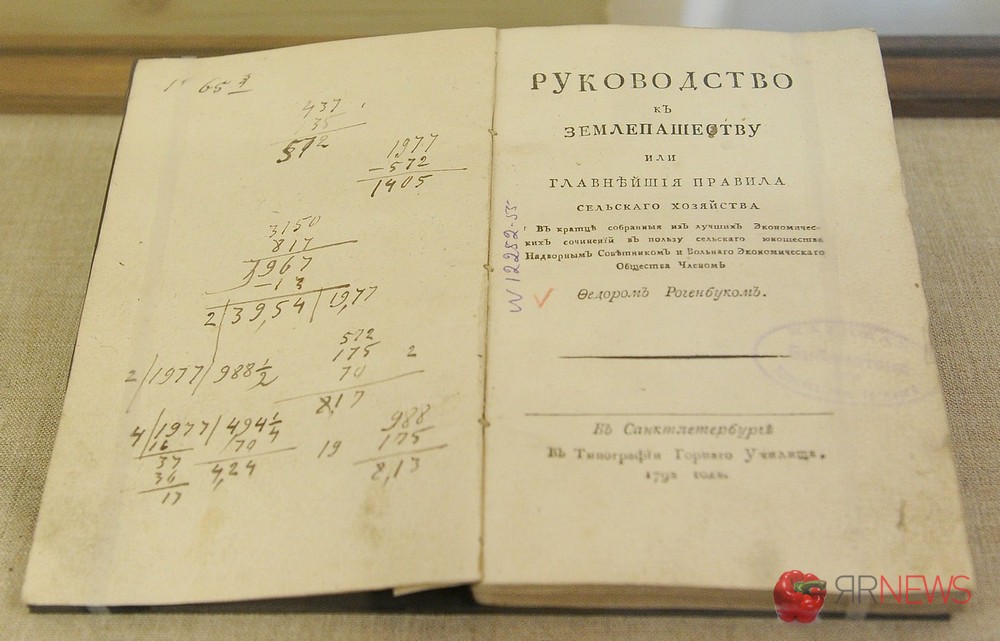 65 3/4
437
35
572
1977
-572
1405
3150
817
3967
-13
2/39,54/19,77
572
175 2
70
817
2/1977/988 1/2
4/1977/494 1/4
16 /70
37 4,24
36
17
19
988
175
8,13
РУКОВОДСТВО
КЪ
ЗЕМЛЕПАШЕСТВУ
ИЛИ
ГЛАВНѢЙШІЯ ПРАВИЛА
СЕЛЬСКАГО ХОЗЯЙСТВА
Въ кратцѣ собранныя изъ лучшихъ Экономичес-
кихъ сочиненій въ пользу сельскаго юношества
Надворнымъ Совѣтникомъ и Вольнаго Экономическаго
Общества Членомъ
Ѳедоромъ Рогенбукомъ.
W 12252-55
Въ Санктпетербургѣ
Въ Типографіи Горнаго Училища,
1792 года.
ЯRNEWS